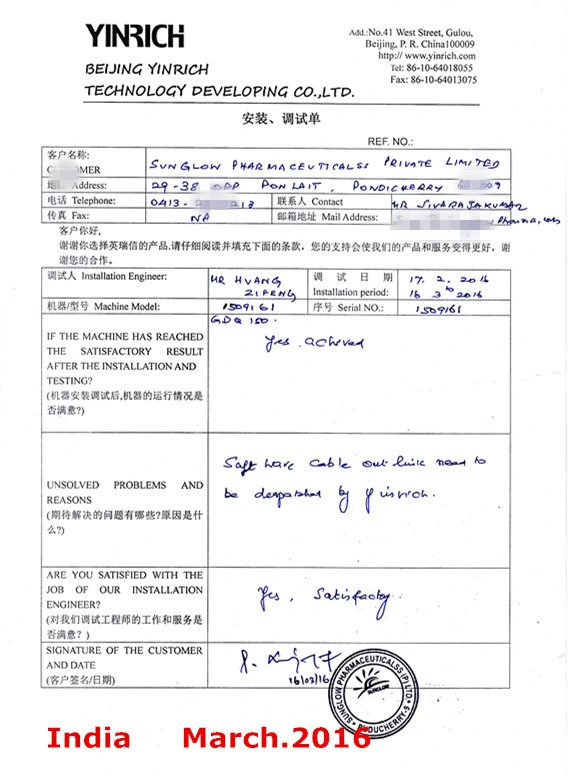 YINRICH
BEIJING YINRICH
TECHNOLOGY DEVELOPING CO.,LTD.
Add.:No.41 West Street, Gulou,
Beijing, P. R. China100009
http:// www.yinrich.com
Tel: 86-10-64018055
Fax: 86-10-64013075
安装、调试单
REF. NO.:
客户名称:
SUNGLOW PHARMACEUTICALSS PRIVATE LIMITED
Address: 29-38 ODP PONLAIT, PONDICHERRY
电话 Telephone: 0413-
联系人 Contact MR SIVARAJAKUMAR
传真 Fax: NA
邮箱地址 Mail Address:
客户你好,
谢谢你选择英瑞信的产品,请仔细阅读并填充下面的条款，您的支持会使我们的产品和服务变得更好，谢
谢您的合作。
调试人 Installation Engineer: MR HUANG
ZIFENG
调 试 日 期 17. 2. 2016
Installation period: 16 3 2016
机器/型号 Machine Model: 1509161
序号 Serial NO.: 1509161
GDQ 150.
IF THE MACHINE HAS REACHED
THE SATISFACTORY RESULT
AFTER THE INSTALLATION AND
TESTING?
(机器安装调试后,机器的运行情况是
否满意?)
Yes. acheved
UNSOLVED PROBLEMS AND
REASONS
(期待解决的问题有哪些?原因是什
么?)
Soft ware cable out link need to
be despatched by Yinrich.
ARE YOU SATISFIED WITH THE
JOB OF OUR INSTALLATION
ENGINEER?
(对我们调试工程师的工作和服务是
否满意？)
Yes, Satisfactory
SIGNATURE OF THE CUSTOMER
AND DATE
(客户签名/日期)
16/03/16
SUNGLOW PHARMACEUTICALSS (P) LTD.
SUNGLOW
PUDUCHERRY-9
India March.2016